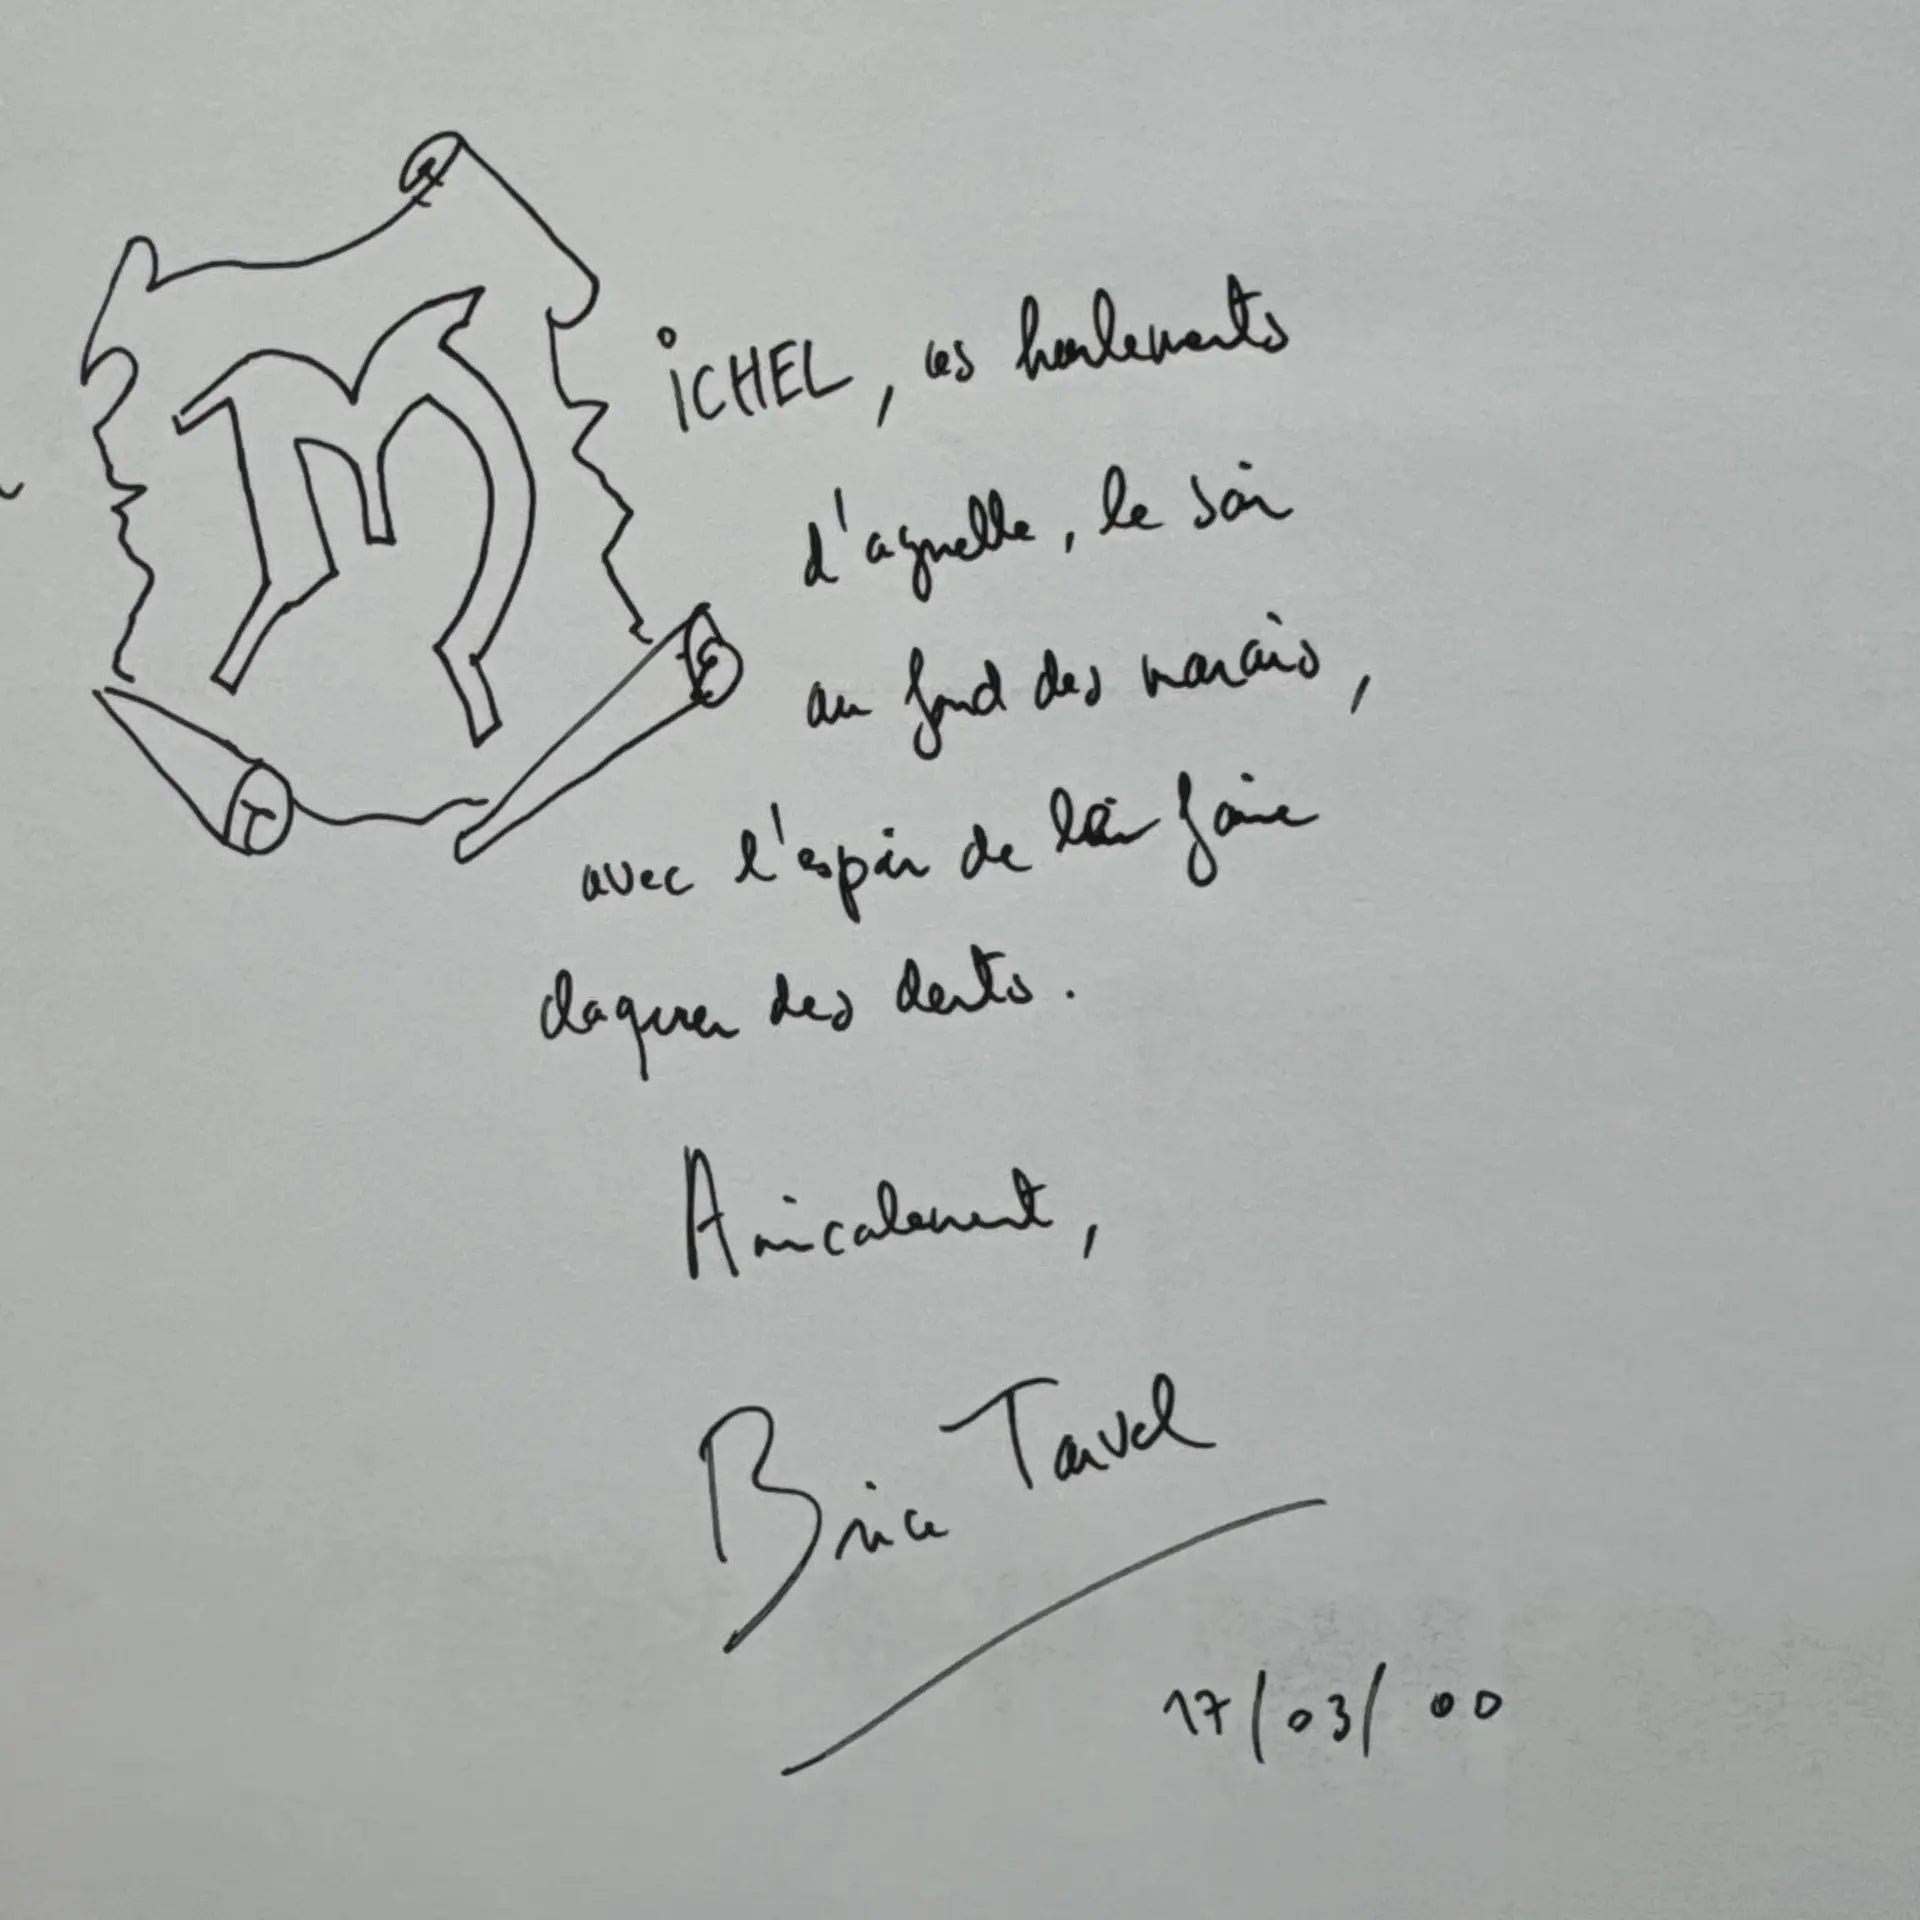 MICHEL, ces hurlements
d'agnelle, le soir
au fond des marais,
avec l'espoir de lui faire
claquer des dents.
Amicalement,
Brice Tarvel
17/03/00